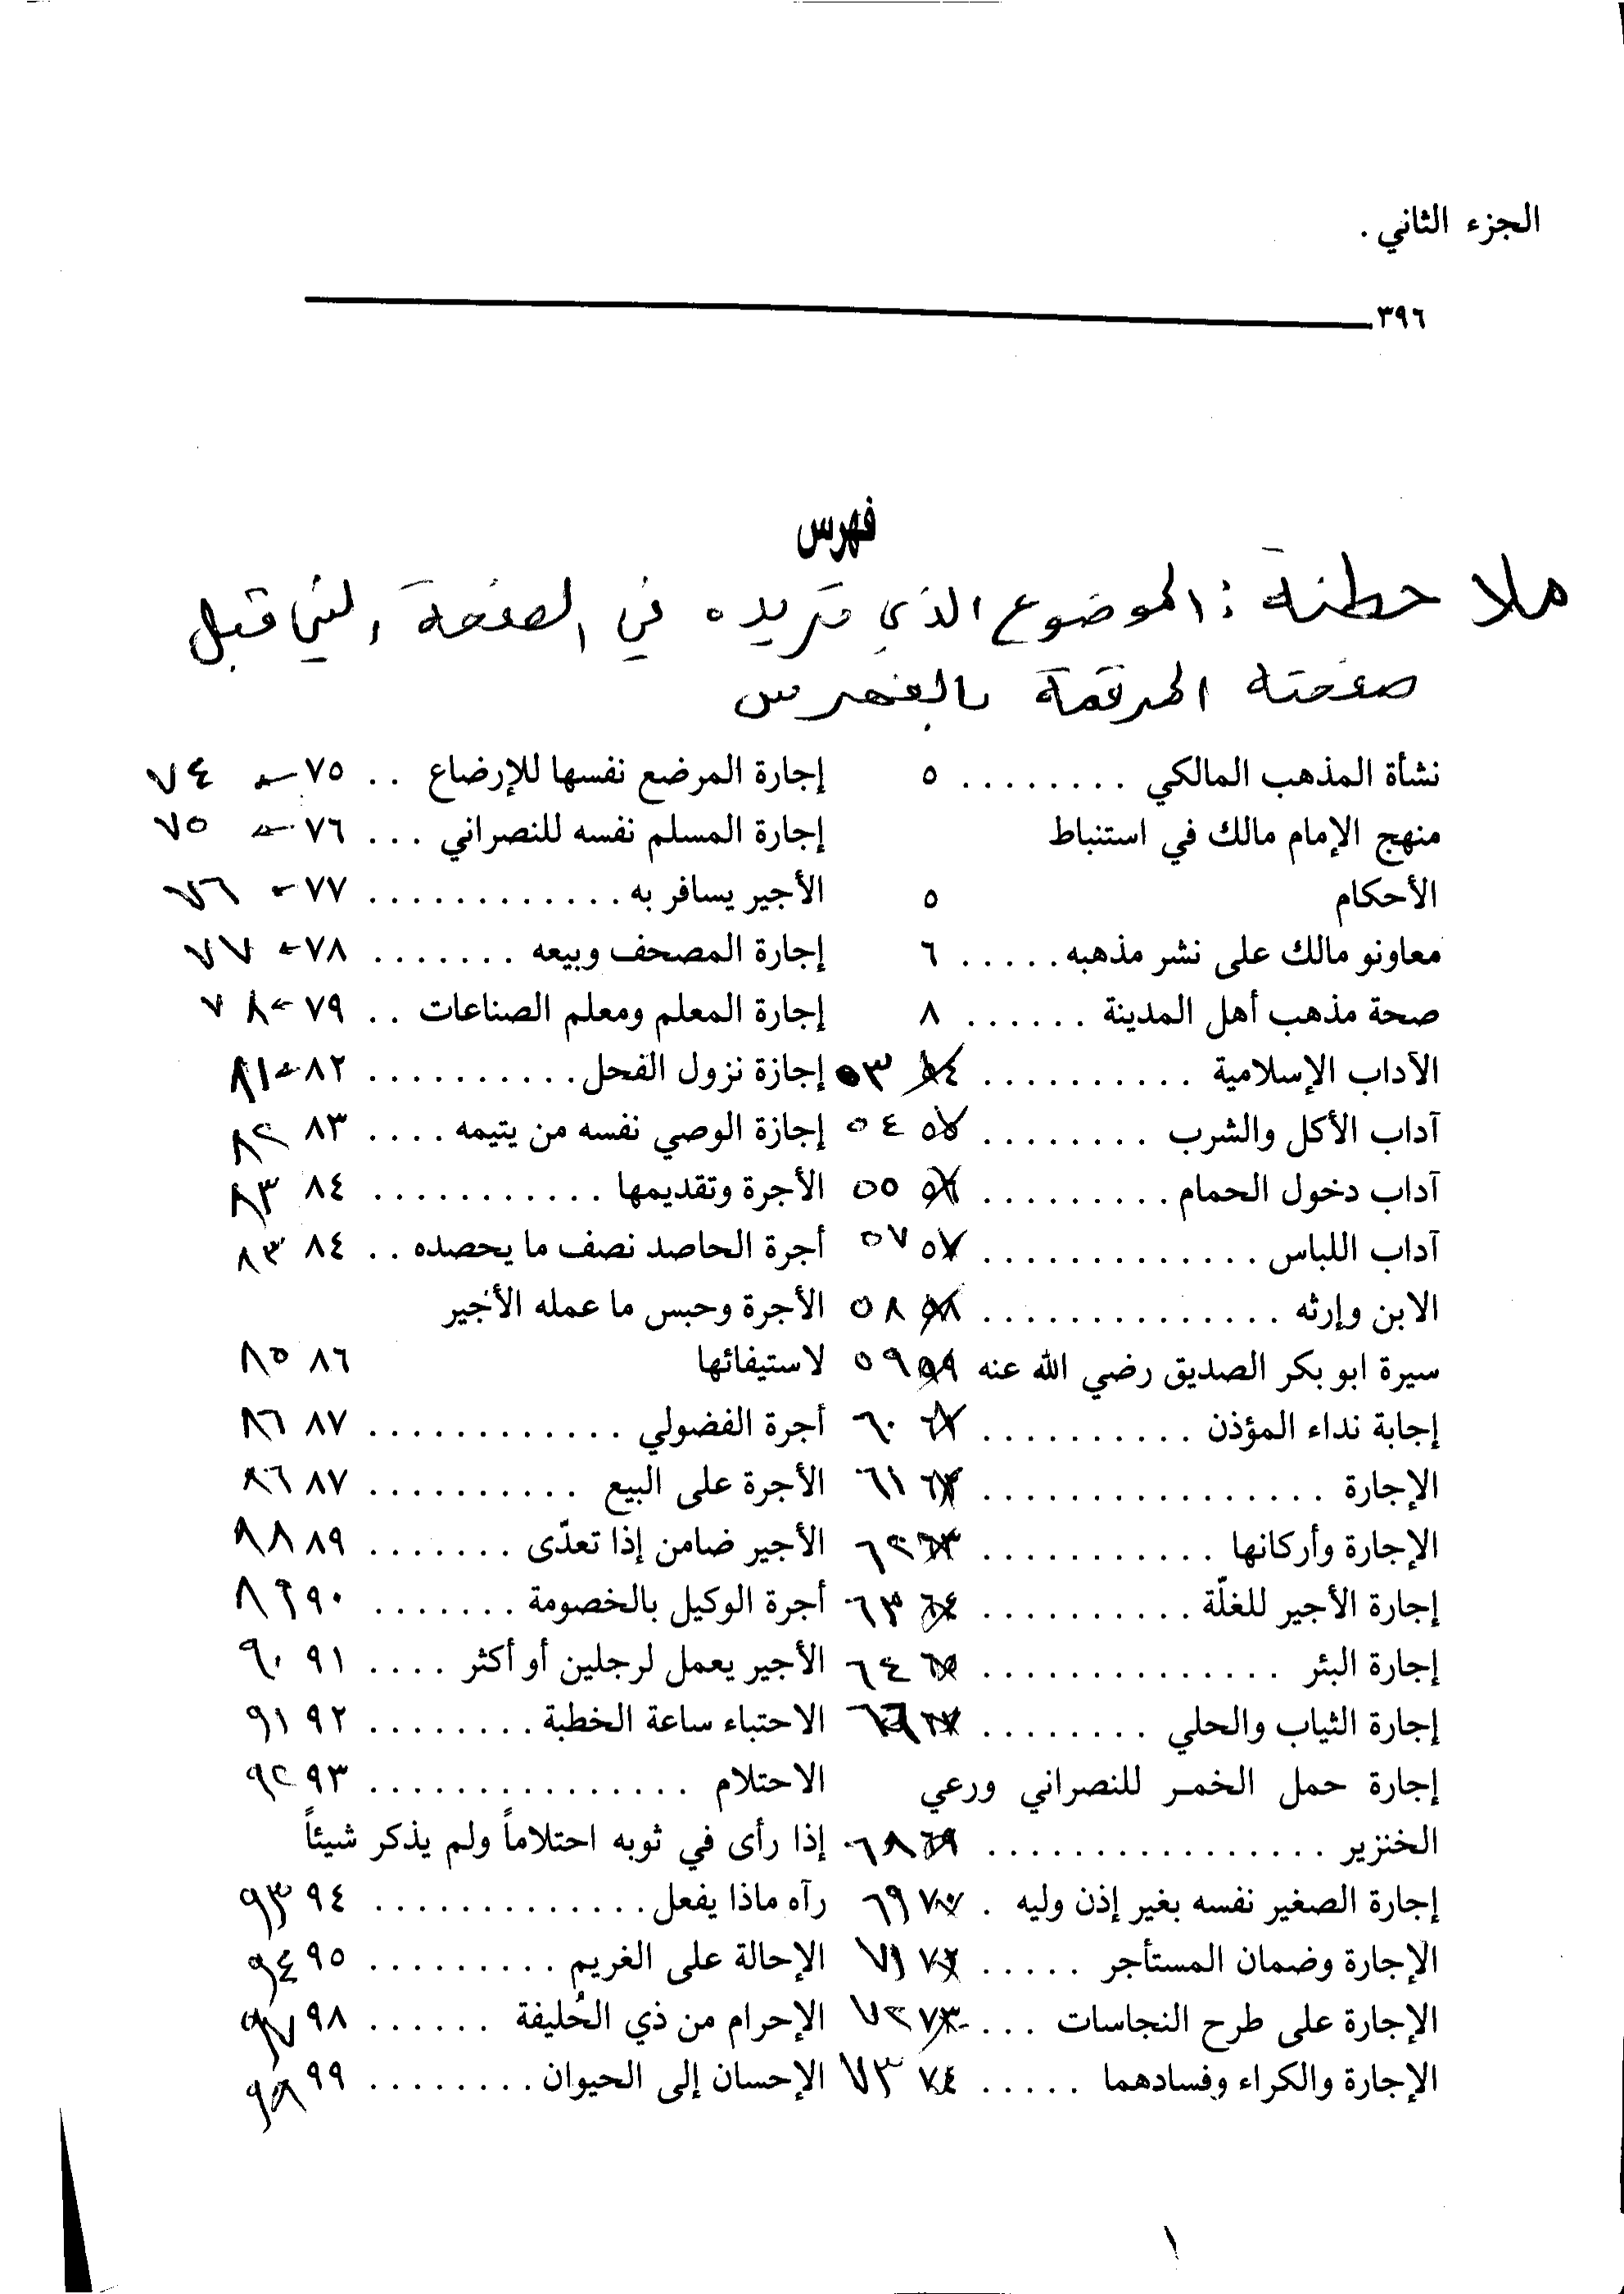 الجزء الثاني .
٣٩٦
فهرس
ملاحظة : الموضوع الذي تريده في الصفحة التي قبل
صفحته المرقمة بالفهرس
نشأة المذهب المالكي ........ ٥
منهج الإمام مالك في استنباط
الأحكام ٥
معاونو مالك على نشر مذهبه ..... ٦
صحة مذهب أهل المدينة ...... ٨
الآداب الإسلامية .......... ٥٤ ٥٣
آداب الأكل والشرب ........ ٥٥ ٥٤
آداب دخول الحمام .......... ٥٦ ٥٥
آداب اللباس ............. ٥٧ ٥٧
الابن وإرثه .............. ٥٨ ٥٨
سيرة ابو بكر الصديق رضي الله عنه ٥٩ ٥٩
إجابة نداء المؤذن .......... ٦٠
الإجارة ................ ٦٢ ٦١
الإجارة وأركانها ........... ٦٣ ٦٢
إجارة الأجير للغلّة .......... ٦٤ ٦٣
إجارة البئر .............. ٦٥ ٦٤
إجارة الثياب والحلي ........ ٦٧ ٦٦
إجارة حمل الخمر للنصراني ورعي
الخنزير ................ ٦٩ ٦٨
إجارة الصغير نفسه بغير إذن وليه . ٧٠ ٦٩
الإجارة وضمان المستأجر ..... ٧٢ ٧١
الإجارة على طرح النجاسات ... ٧٣ ٧٢
الإجارة والكراء وفسادهما ..... ٧٤ ٧٣
إجارة المرضع نفسها للإرضاع .. ٧٥ ← ٧٤
إجارة المسلم نفسه للنصراني ... ٧٦ ← ٧٥
الأجير يسافر به ............ ٧٧ ← ٧٦
إجارة المصحف وبيعه ....... ٧٨ ← ٧٧
إجارة المعلم ومعلم الصناعات .. ٧٩ ← ٧٨
إجازة نزول الفحل .......... ٨٢ ← ٨١
إجازة الوصي نفسه من يتيمه .... ٨٣ ٨٢
الأجرة وتقديمها ........... ٨٤ ٨٣
أجرة الحاصد نصف ما يحصده .. ٨٤ ٨٣
الأجرة وحبس ما عمله الأجير
لاستيفائها ٨٦ ٨٥
أجرة الفضولي ............ ٨٧ ٨٦
الأجرة على البيع .......... ٨٧ ٨٦
الأجير ضامن إذا تعدّى ....... ٨٩ ٨٨
أجرة الوكيل بالخصومة ....... ٩٠ ٨٩
الأجير يعمل لرجلين أو أكثر .... ٩١ ٩٠
الاحتباء ساعة الخطبة ........ ٩٢ ٩١
الاحتلام ............... ٩٣ ٩٢
إذا رأى في ثوبه احتلاماً ولم يذكر شيئاً
رآه ماذا يفعل ............. ٩٤ ٩٣
الإحالة على الغريم ......... ٩٥ ٩٤
الإحرام من ذي الحُليفة ...... ٩٨ ٩٧
الإحسان إلى الحيوان ........ ٩٩ ٩٨
١